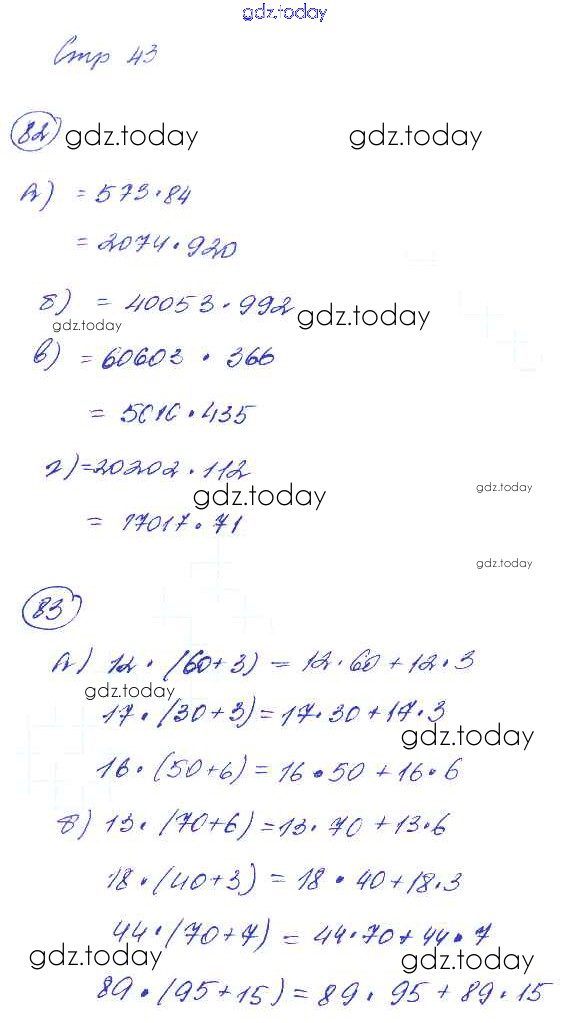 gdz.today
Стр 43
82 gdz.today gdz.today
а) = 573·84
= 2074·920
б) = 40053·992 gdz.today
gdz.today
в) = 60603 · 366
= 5616·435
г) = 20202·112
gdz.today gdz.today
= 17017·71
gdz.today
83
а) 12·(60+3) = 12·60+12·3
gdz.today
17·(30+3) = 17·30+17·3
gdz.today
16·(50+6) = 16·50+16·6
б) 13·(70+6) = 13·70+13·6
18·(40+3) = 18·40+18·3
44·(70+7) = 44·70+44·7
gdz.today gdz.today
89·(95+15) = 89·95+89·15